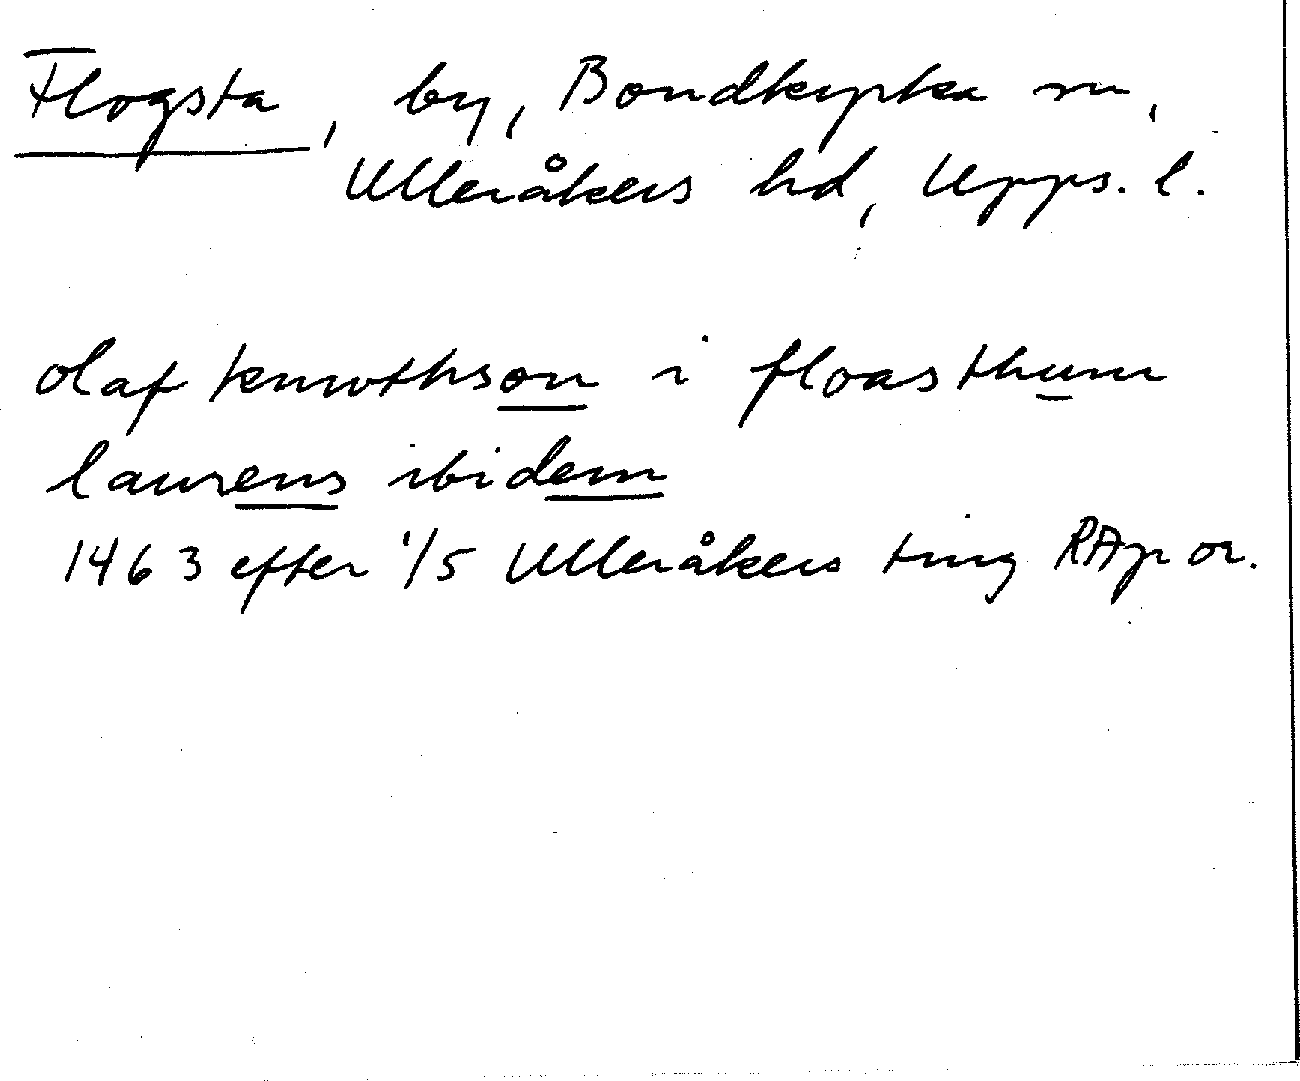 Flogsta, by, Bondkyrka sn,
Ulleråkers hd, Upps. l.
olaf knwthson i floasthum
laurens ibidem
1463 efter 1/5 Ulleråkers ting RAp or.